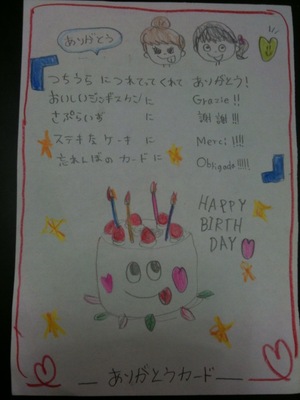 ありがとう
つちうらにつれてってくれて ありがとう!
おいしいジンギスカンに Grazie!!
さぷらいずに 謝謝!!!
ステキなケーキに Merci!!!!
忘れんぼのカードに Obrigado!!!!!
HAPPY
BIRTH
DAY
ありがとうカード